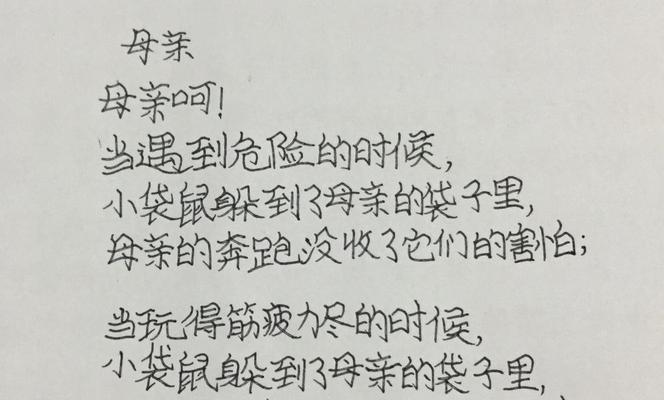 母亲
母亲呵!
当遇到危险的时候,
小袋鼠躲到了母亲的袋子里,
母亲的奔跑没收了它们的害怕;
当玩得筋疲力尽的时候,
小袋鼠躲到了母亲的袋子里,